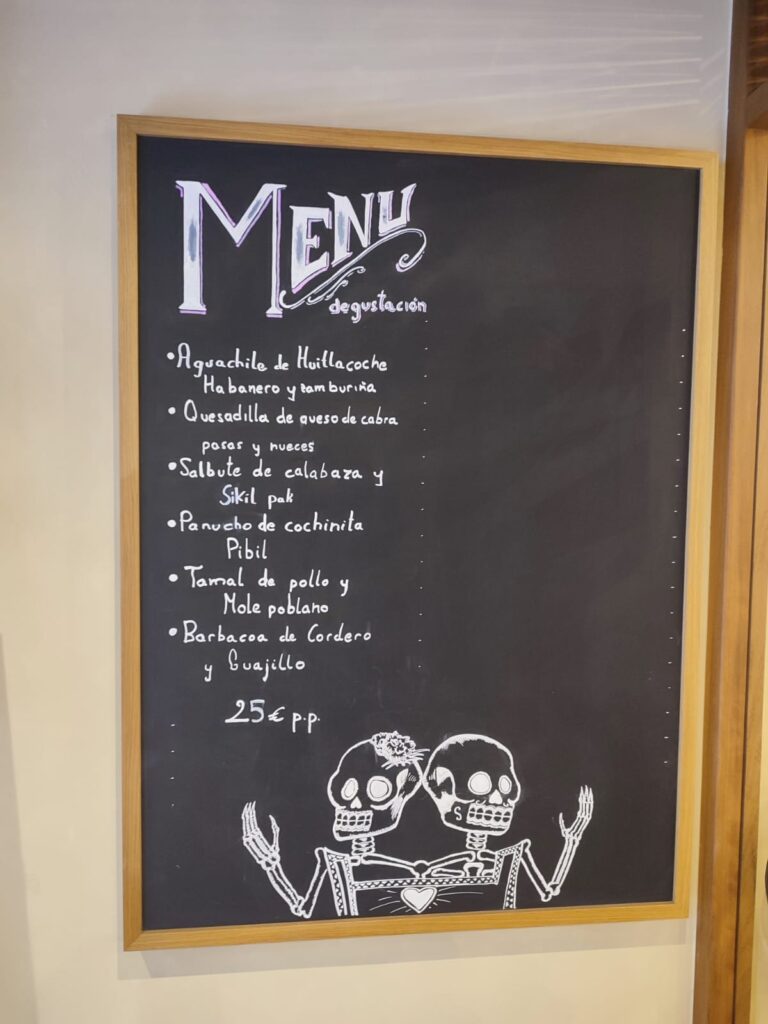 MENU
degustación
• Aguachile de Huitlacoche
Habanero y zamburiña
• Quesadilla de queso de cabra
pasas y nueces
• Salbute de calabaza y
Sikil pak
• Panucho de cochinita
Pibil
• Tamal de pollo y
Mole poblano
• Barbacoa de Cordero
y Guajillo
25€ p.p.
S